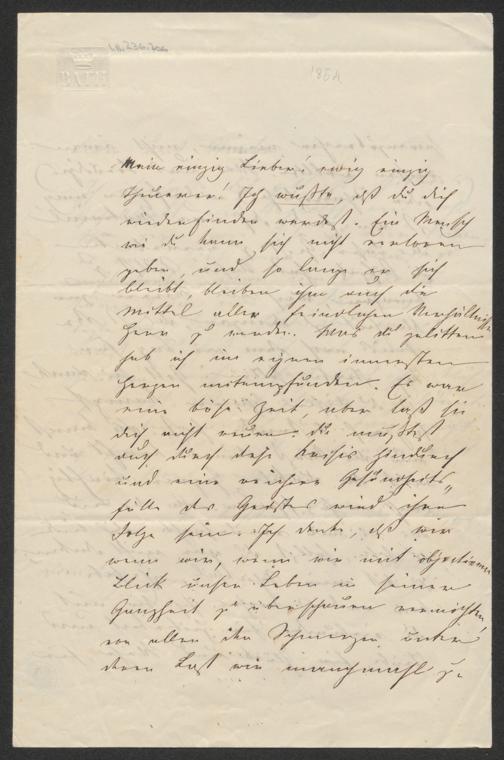 I.N. 236.200
1854
BATH
Mein einzig Lieber! ewig einzig
Theuerer! Ich wußte, daß du dich
wiederfinden werdest. Ein Mensch
wie du kann sich nicht verloren
geben, und so lange er sich
bleibt, bleiben ihm auch die
Mittel aller feindlichen Verhältnisse
Herr zu werden. Was du gelitten
hab ich im eignen innersten
Herzen mitempfunden. Es war
eine böse Zeit, aber laß sie
dich nicht reuen. du mußtest
auch durch diese Krisis hindurch
und eine reichere Gesundheits„
fülle des Geistes wird ihre
Folge sein. Ich denke, daß wir
wenn wir, wenn wir mit objectivem
Blick unser Leben in seiner
Ganzheit zu überschauen vermöchten,
von allen den Schmerzen unter
deren Last wir manchmahl zu